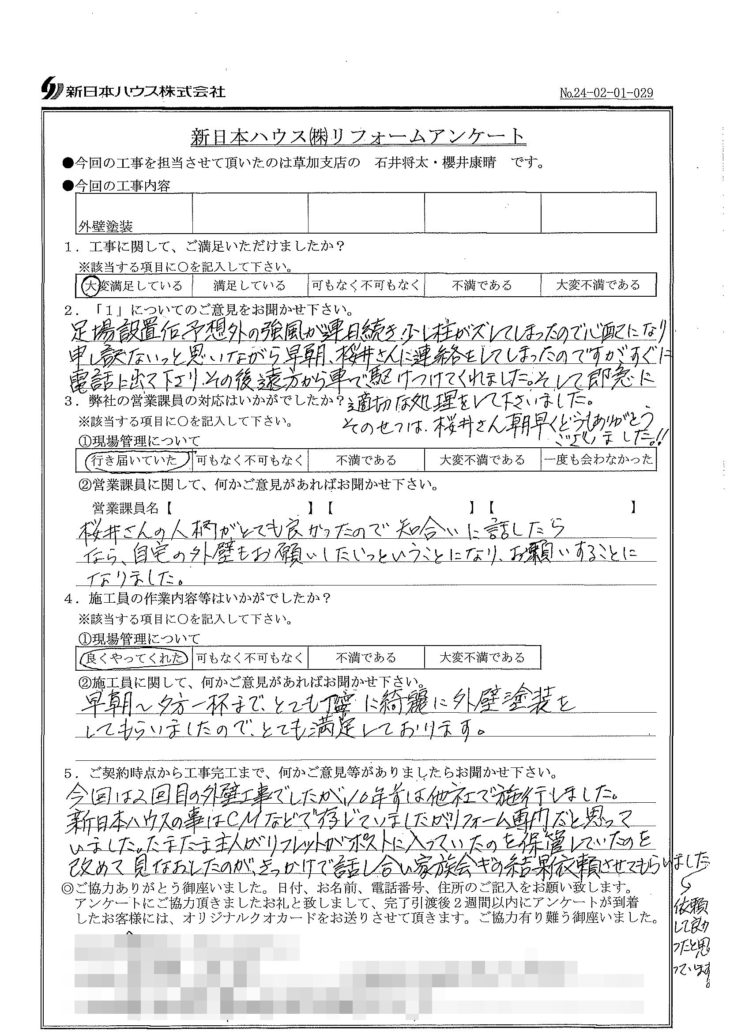 新日本ハウス株式会社
No.24-02-01-029
新日本ハウス㈱リフォームアンケート
●今回の工事を担当させて頂いたのは草加支店の 石井将太・櫻井康晴 です。
●今回の工事内容
外壁塗装
1．工事に関して、ご満足いただけましたか？
※該当する項目に○を記入して下さい。
大変満足している 満足している 可もなく不可もなく 不満である 大変不満である
2．「1」についてのご意見をお聞かせ下さい。
足場設置后予想外の強風が連日続き少し柱がズレてしまったので心配になり
申し訳ないっと思いながら早朝、桜井さんに連絡をしてしまったのですがすぐに
電話に出て下さり、その後遠方から車で駆けつけてくれました。そして即急に
3．弊社の営業課員の対応はいかがでしたか？
適切な処理をして下さいました。
※該当する項目に○を記入して下さい。
そのせつは、桜井さん朝早くどうもありがとう
ございました。!!
①現場管理について
行き届いていた 可もなく不可もなく 不満である 大変不満である 一度も会わなかった
②営業課員に関して、何かご意見があればお聞かせ下さい。
営業課員名【 】【 】【 】
桜井さんの人柄がとても良かったので知合いに話したら
なら、自宅の外壁もお願いしたいっということになり、お願いすることに
なりました。
4．施工員の作業内容等はいかがでしたか？
※該当する項目に○を記入して下さい。
①現場管理について
良くやってくれた 可もなく不可もなく 不満である 大変不満である
②施工員に関して、何かご意見があればお聞かせ下さい。
早朝～夕方一杯まで、とても丁寧に綺麗に外壁塗装を
してもらいましたので、とても満足しております。
5．ご契約時点から工事完工まで、何かご意見等がありましたらお聞かせ下さい。
今回は2回目の外壁工事でしたが、10年前は他社で施行しました。
新日本ハウスの事はCMなどで存じていましたがリフォーム専門だと思って
いました。たまたま主人がリフレットがポストに入っていたのを保管していたのを
改めて見なおしたのが、きっかけで話し合い家族会ギの結果依頼させてもらいました
依頼
して良か
ったと思
っています。
◎ご協力ありがとう御座いました。日付、お名前、電話番号、住所のご記入をお願い致します。
アンケートにご協力頂きましたお礼と致しまして、完了引渡後2週間以内にアンケートが到着
したお客様には、オリジナルクオカードをお送りさせて頂きます。ご協力有り難う御座いました。